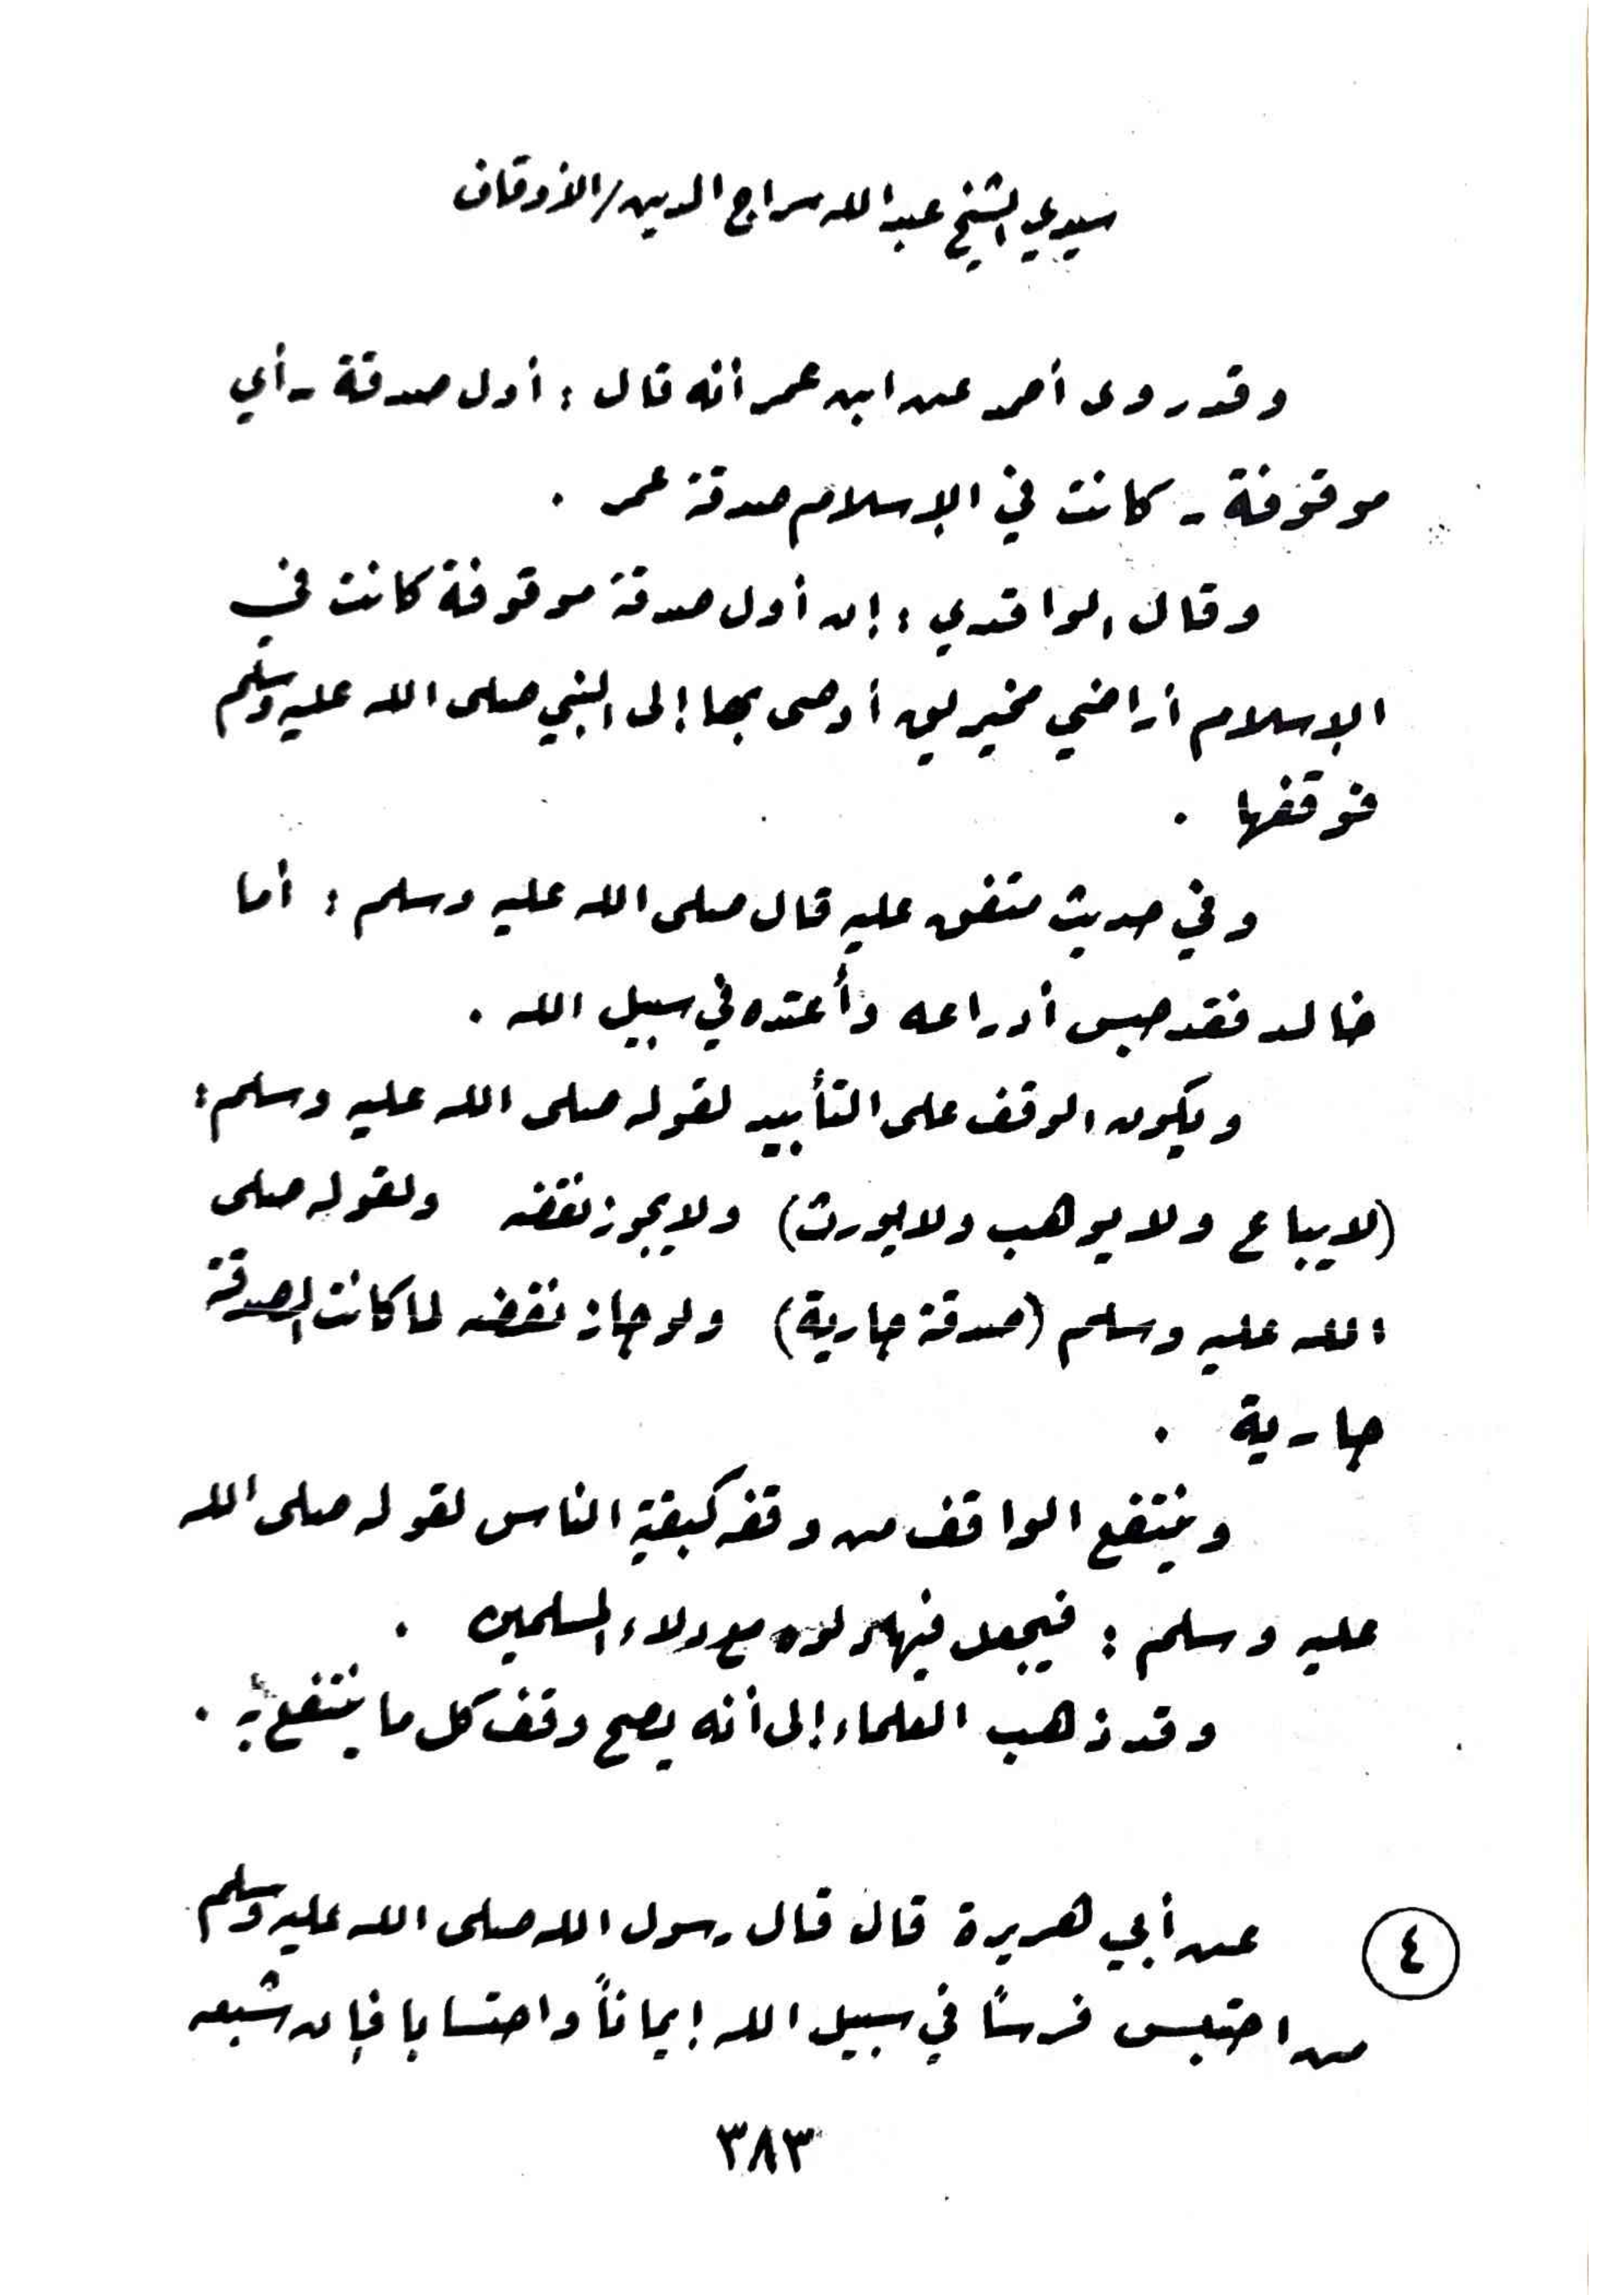 سيدي الشيخ عبد الله سراج الدين / الأوقاف
وقد روى أحمد عن ابن عمر أنه قال : أول صدقة - أي
موقوفة - كانت في الإسلام صدقة عمر .
وقال الواقدي : إن أول صدقة موقوفة كانت في
الإسلام أراضي مخيريق أوصى بها إلى النبي صلى الله عليه وسلم
فوقفها .
وفي حديث متفق عليه قال صلى الله عليه وسلم : أما
خالد فقد حبس أدراعه وأعتده في سبيل الله .
ويكون الوقف على التأبيد لقوله صلى الله عليه وسلم :
(لا يباع ولا يوهب ولا يورث) ولا يجوز نقضه ولقوله صلى
الله عليه وسلم (صدقة جارية) ولو جاز نقضه لما كانت الصدقة
جارية .
وينتفع الواقف من وقفه كبقية الناس لقوله صلى الله
عليه وسلم : فيجعل فيها دلوه مع دلاء المسلمين .
وقد ذهب العلماء إلى أنه يصح وقف كل ما ينتفع به .
٤ عن أبي هريرة قال قال رسول الله صلى الله عليه وسلم
من احتبس فرساً في سبيل الله إيماناً واحتسابا فإن شبعه
٣٨٣